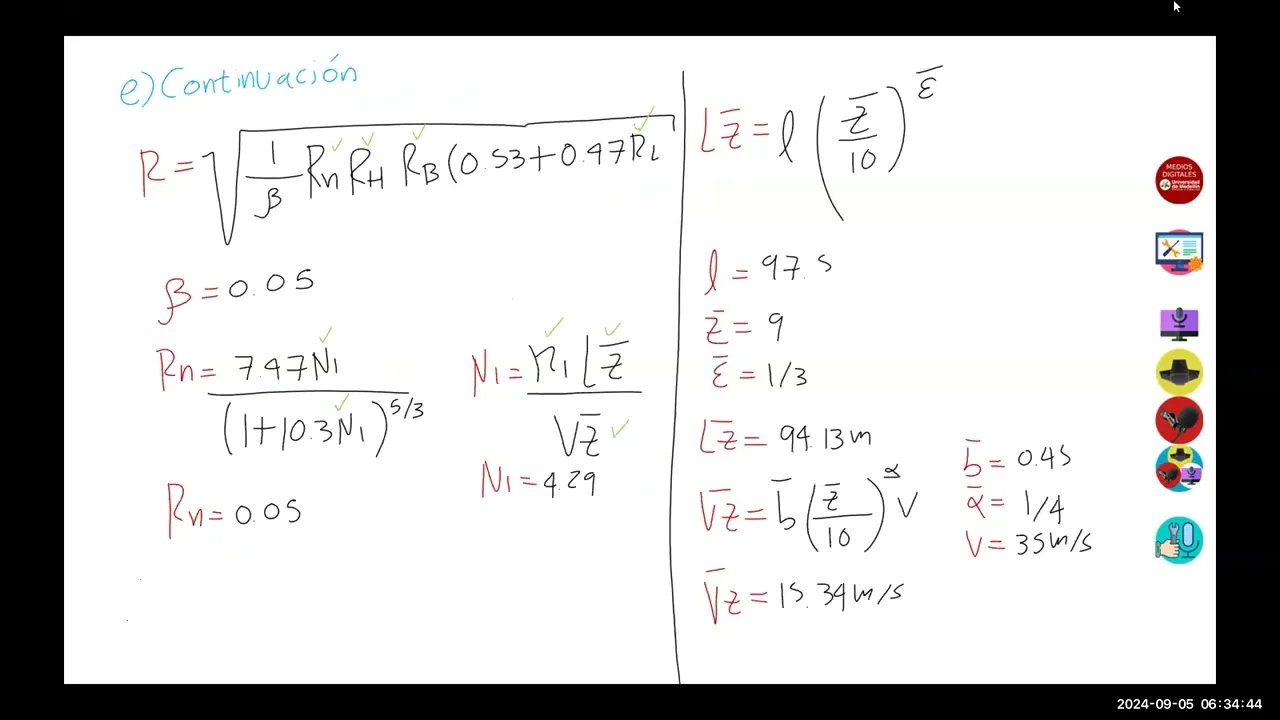 e) Continuación
R = √(1/β Rn RH RB (0.53 + 0.47 RL
β = 0.05
Rn = 7.47N1 / (1 + 10.3N1)^5/3
N1 = n1 Lz̄ / V̄z̄
N1 = 4.29
Rn = 0.05
Lz̄ = l (z̄/10)^ε̄
l = 97.5
z̄ = 9
ε̄ = 1/3
Lz̄ = 94.13m
V̄z = b̄ (z̄/10)^ᾱ V
b̄ = 0.45
ᾱ = 1/4
V = 35m/s
V̄z = 15.34m/s
MEDIOS
DIGITALES
Universidad
de Medellín
2024-09-05 06:34:44